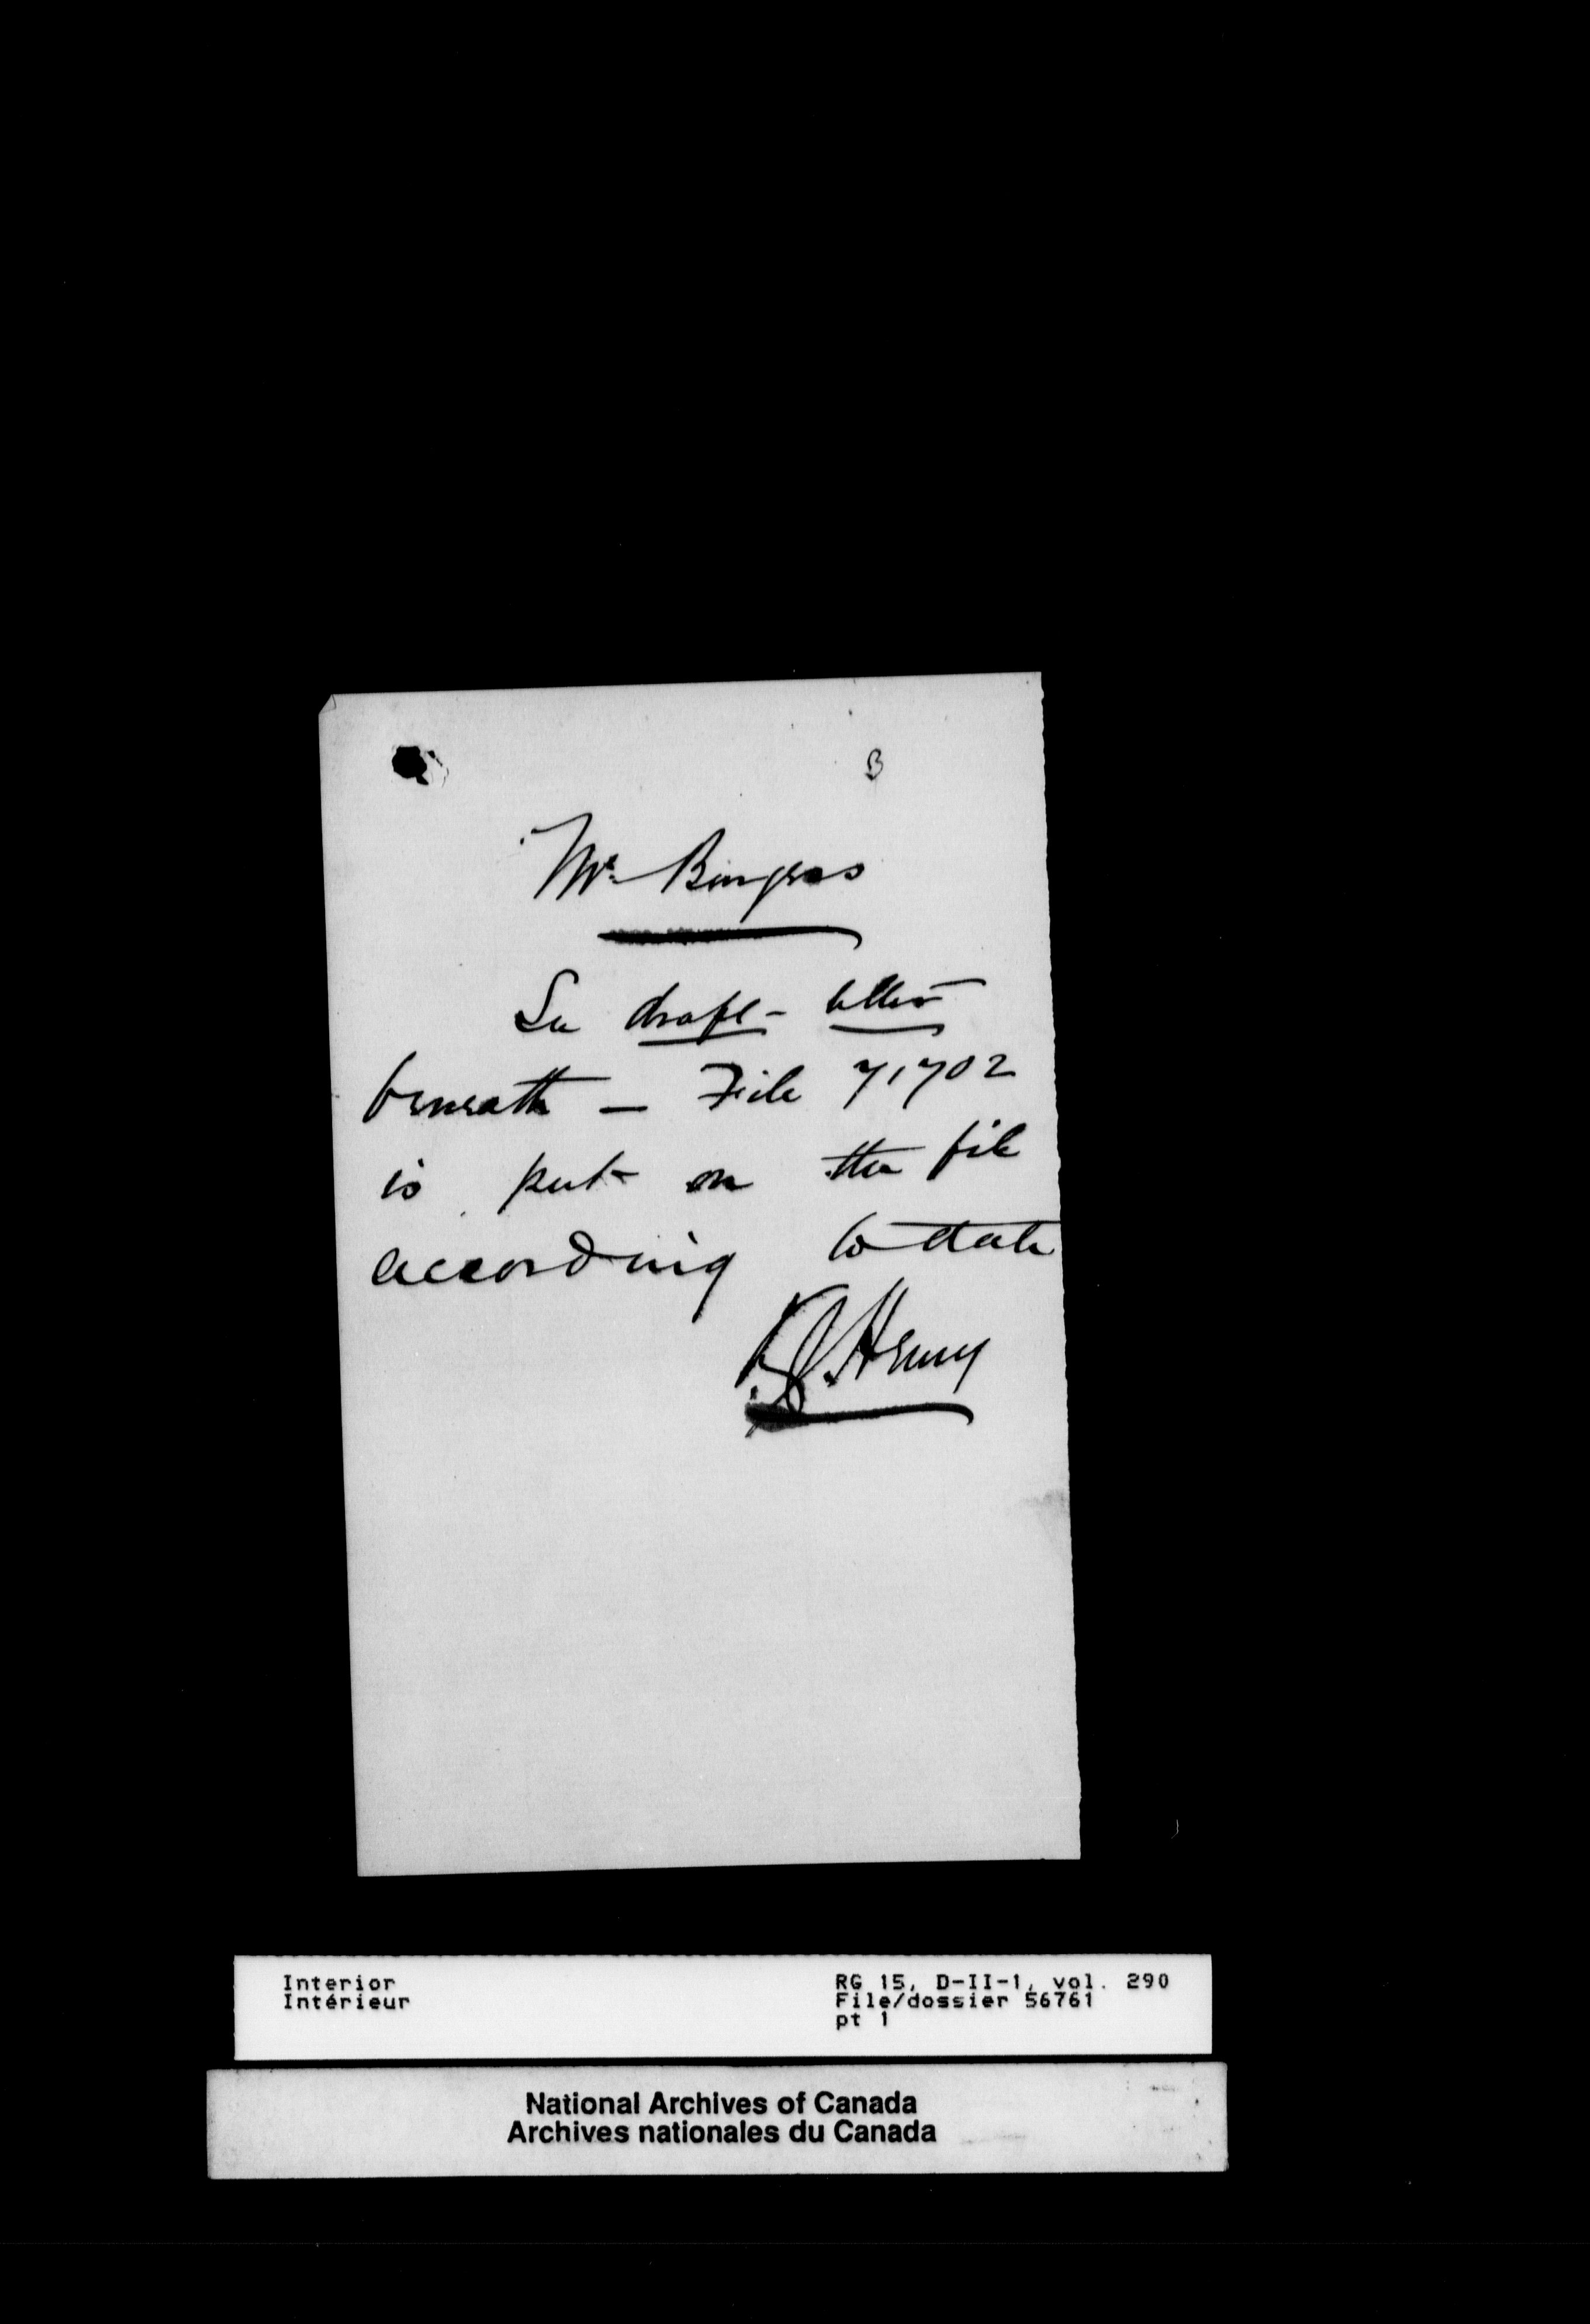 B
Mr. Burgess
See draft letter
beneath — File 71702
is put on the file
according to date
K.J. Henry
Interior
Intérieur
RG 15, D-II-1, vol. 290
File/dossier 56761
pt 1
National Archives of Canada
Archives nationales du Canada